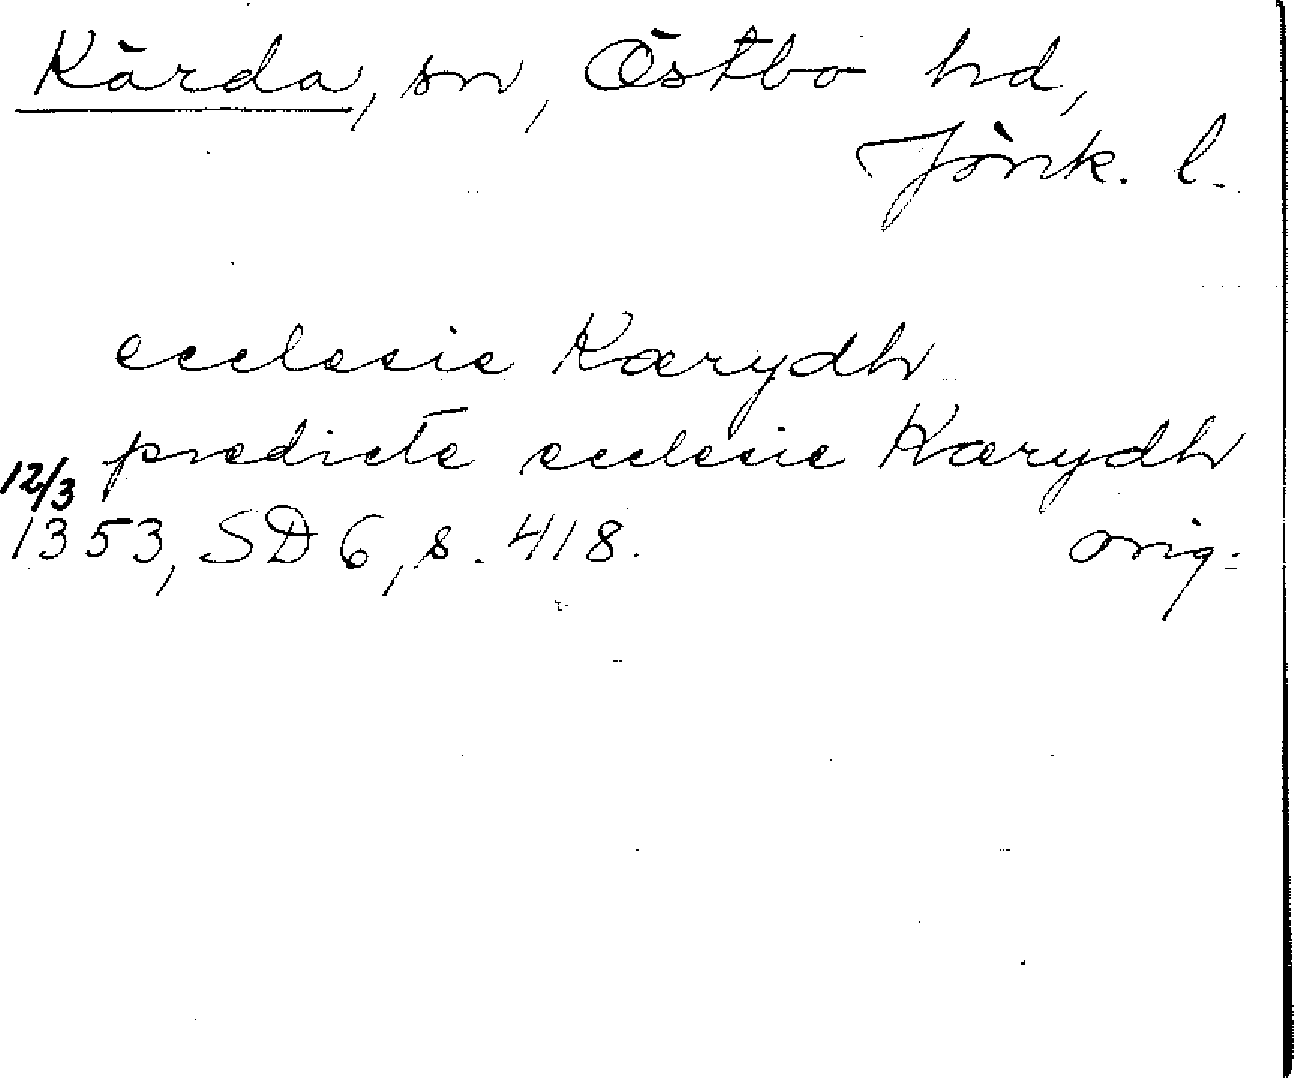 Kärda, sn, Östbo hd,
Jönk. l.
ecclesie Kærydh
predicte ecclesie Kærydh
12/3
1353, SD 6, s. 418. orig.